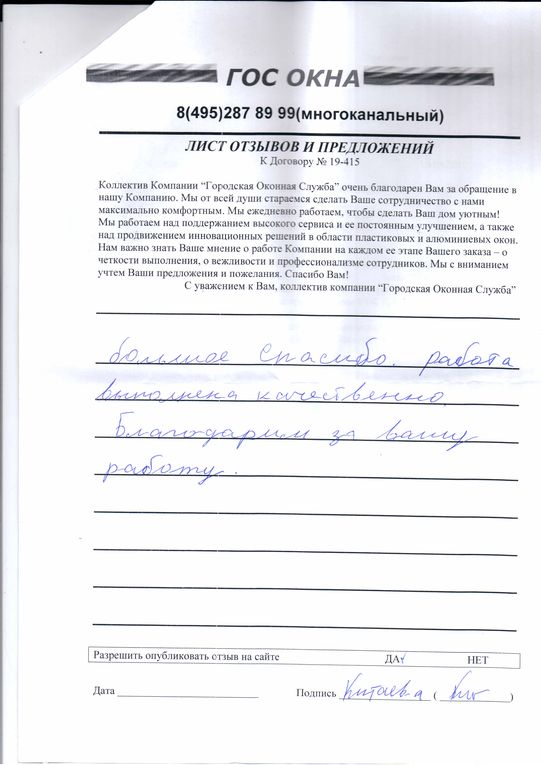 ГОС ОКНА
8(495)287 89 99(многоканальный)
ЛИСТ ОТЗЫВОВ И ПРЕДЛОЖЕНИЙ
К Договору № 19-415
Коллектив Компании “Городская Оконная Служба” очень благодарен Вам за обращение в
нашу Компанию. Мы от всей души стараемся сделать Ваше сотрудничество с нами
максимально комфортным. Мы ежедневно работаем, чтобы сделать Ваш дом уютным!
Мы работаем над поддержанием высокого сервиса и ее постоянным улучшением, а также
над продвижением инновационных решений в области пластиковых и алюминиевых окон.
Нам важно знать Ваше мнение о работе Компании на каждом ее этапе Вашего заказа – о
четкости выполнения, о вежливости и профессионализме сотрудников. Мы с вниманием
учтем Ваши предложения и пожелания. Спасибо Вам!
С уважением к Вам, коллектив компании “Городская Оконная Служба”
большое спасибо. работа
выполнена качественно
Благодарим за вашу
работу.
Разрешить опубликовать отзыв на сайте ДА НЕТ
Дата Подпись Китаева ( )